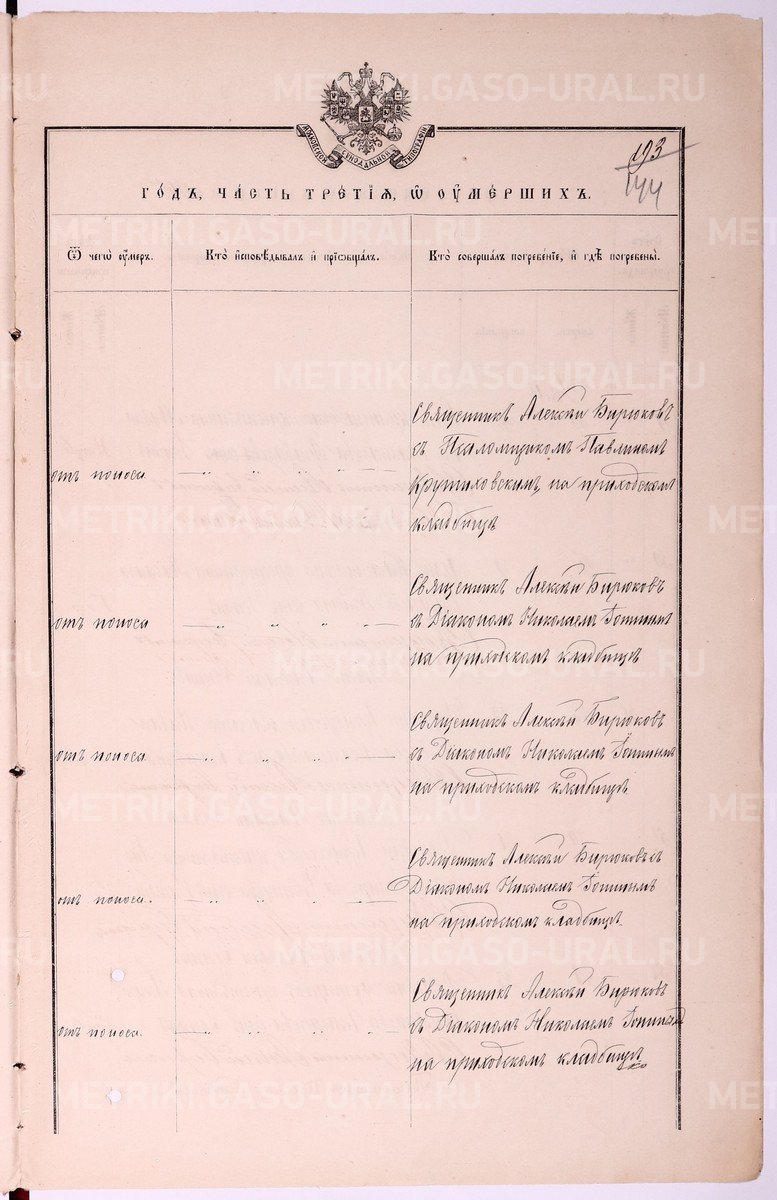 METRIKI.GASO-URAL.RU
МОСКОВСКОЙ СѴНОДАЛЬНОЙ ТИПОГРАФІИ
193
144
ГО́ДЪ, ЧА́СТЬ ТРЕ́ТІѦ, Ѿ ОУ҆МЕ́РШИХЪ.
Ѿ чегѡ̀ ᲂу҆́меръ.
Кто̀ и҆сповѣ́дывалъ и҆ прїѡбща́лъ.
Кто̀ соверша́лъ погребе́нїе, и҆ гдѣ̀ погребены̀.
отъ поноса
Священникъ Алексѣй Бирюковъ
съ Псаломщикомъ Павлиномъ
Крутиховскимъ, на приходскомъ
кладбищѣ
отъ поноса
Священникъ Алексѣй Бирюковъ
съ Діакономъ Николаемъ
на приходскомъ кладбищѣ
отъ поноса
Священникъ Алексѣй Бирюковъ
съ Діакономъ Николаемъ
на приходскомъ кладбищѣ
отъ поноса.
Священникъ Алексѣй Бирюковъ съ
Діакономъ Николаемъ
на приходскомъ кладбищѣ.
отъ поноса.
Священникъ Алексѣй Бирюковъ
съ Діакономъ Николаемъ
на приходскомъ кладбищѣ